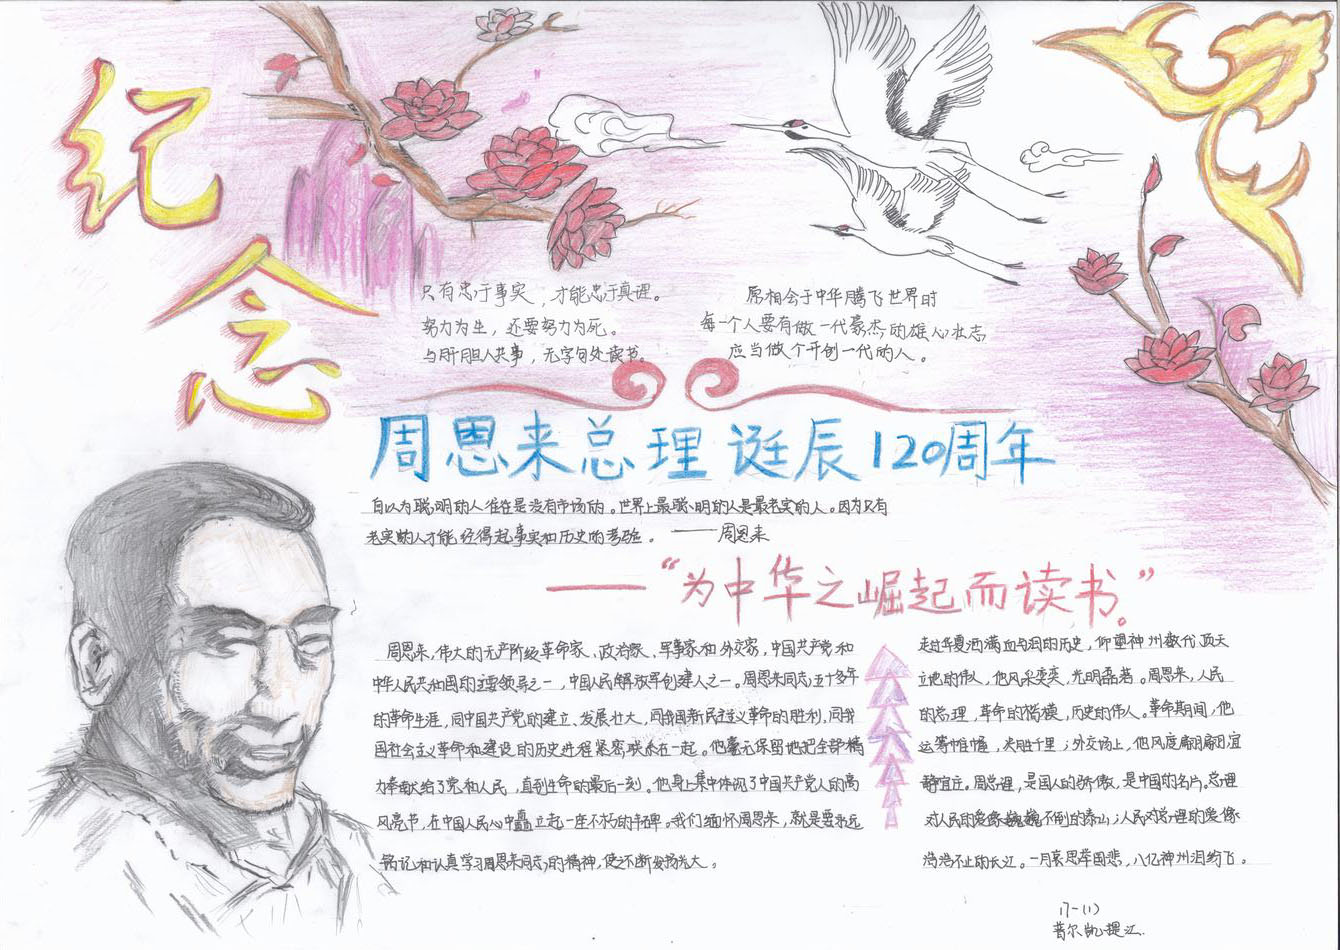 纪念
只有忠于事实，才能忠于真理。
努力为生，还要努力为死。
与肝胆人共事，无字句处读书。
愿相会于中华腾飞世界时
每一个人要有做一代豪杰的雄心壮志
应当做个开创一代的人。
周恩来总理诞辰120周年
自以为聪明的人往往是没有市场的。世界上最聪明的人是最老实的人。因为只有
老实的人才能经得起事实和历史的考验。——周恩来
——“为中华之崛起而读书”。
周恩来，伟大的无产阶级革命家、政治家、军事家和外交家，中国共产党和
中华人民共和国的主要领导之一，中国人民解放军创建人之一。周恩来同志五十多年
的革命生涯，同中国共产党的建立、发展壮大，同我国新民主主义革命的胜利，同我
国社会主义革命和建设的历史进程紧密联系在一起。他毫无保留地把全部精
力奉献给了党和人民，直到生命的最后一刻。他身上集中体现了中国共产党人的高
风亮节，在中国人民心中矗立起一座不朽的丰碑。我们缅怀周恩来，就是要永远
铭记和认真学习周恩来同志的精神，使之不断发扬光大。
走过华夏洒满血与泪的历史，仰望神州数代顶天
立地的伟人，他风采奕奕，光明磊落。周恩来，人民
的总理，革命的楷模，历史的伟人。革命期间，他
运筹帷幄，决胜千里；外交场上，他风度翩翩宜
静宜庄。周总理，是国人的骄傲，是中国的名片。总理
对人民的爱像巍巍不倒的泰山；人民对总理的爱像
滔滔不止的长江。一月哀思举国悲，八亿神州泪纷飞。
17-(1)
普尔凯提江